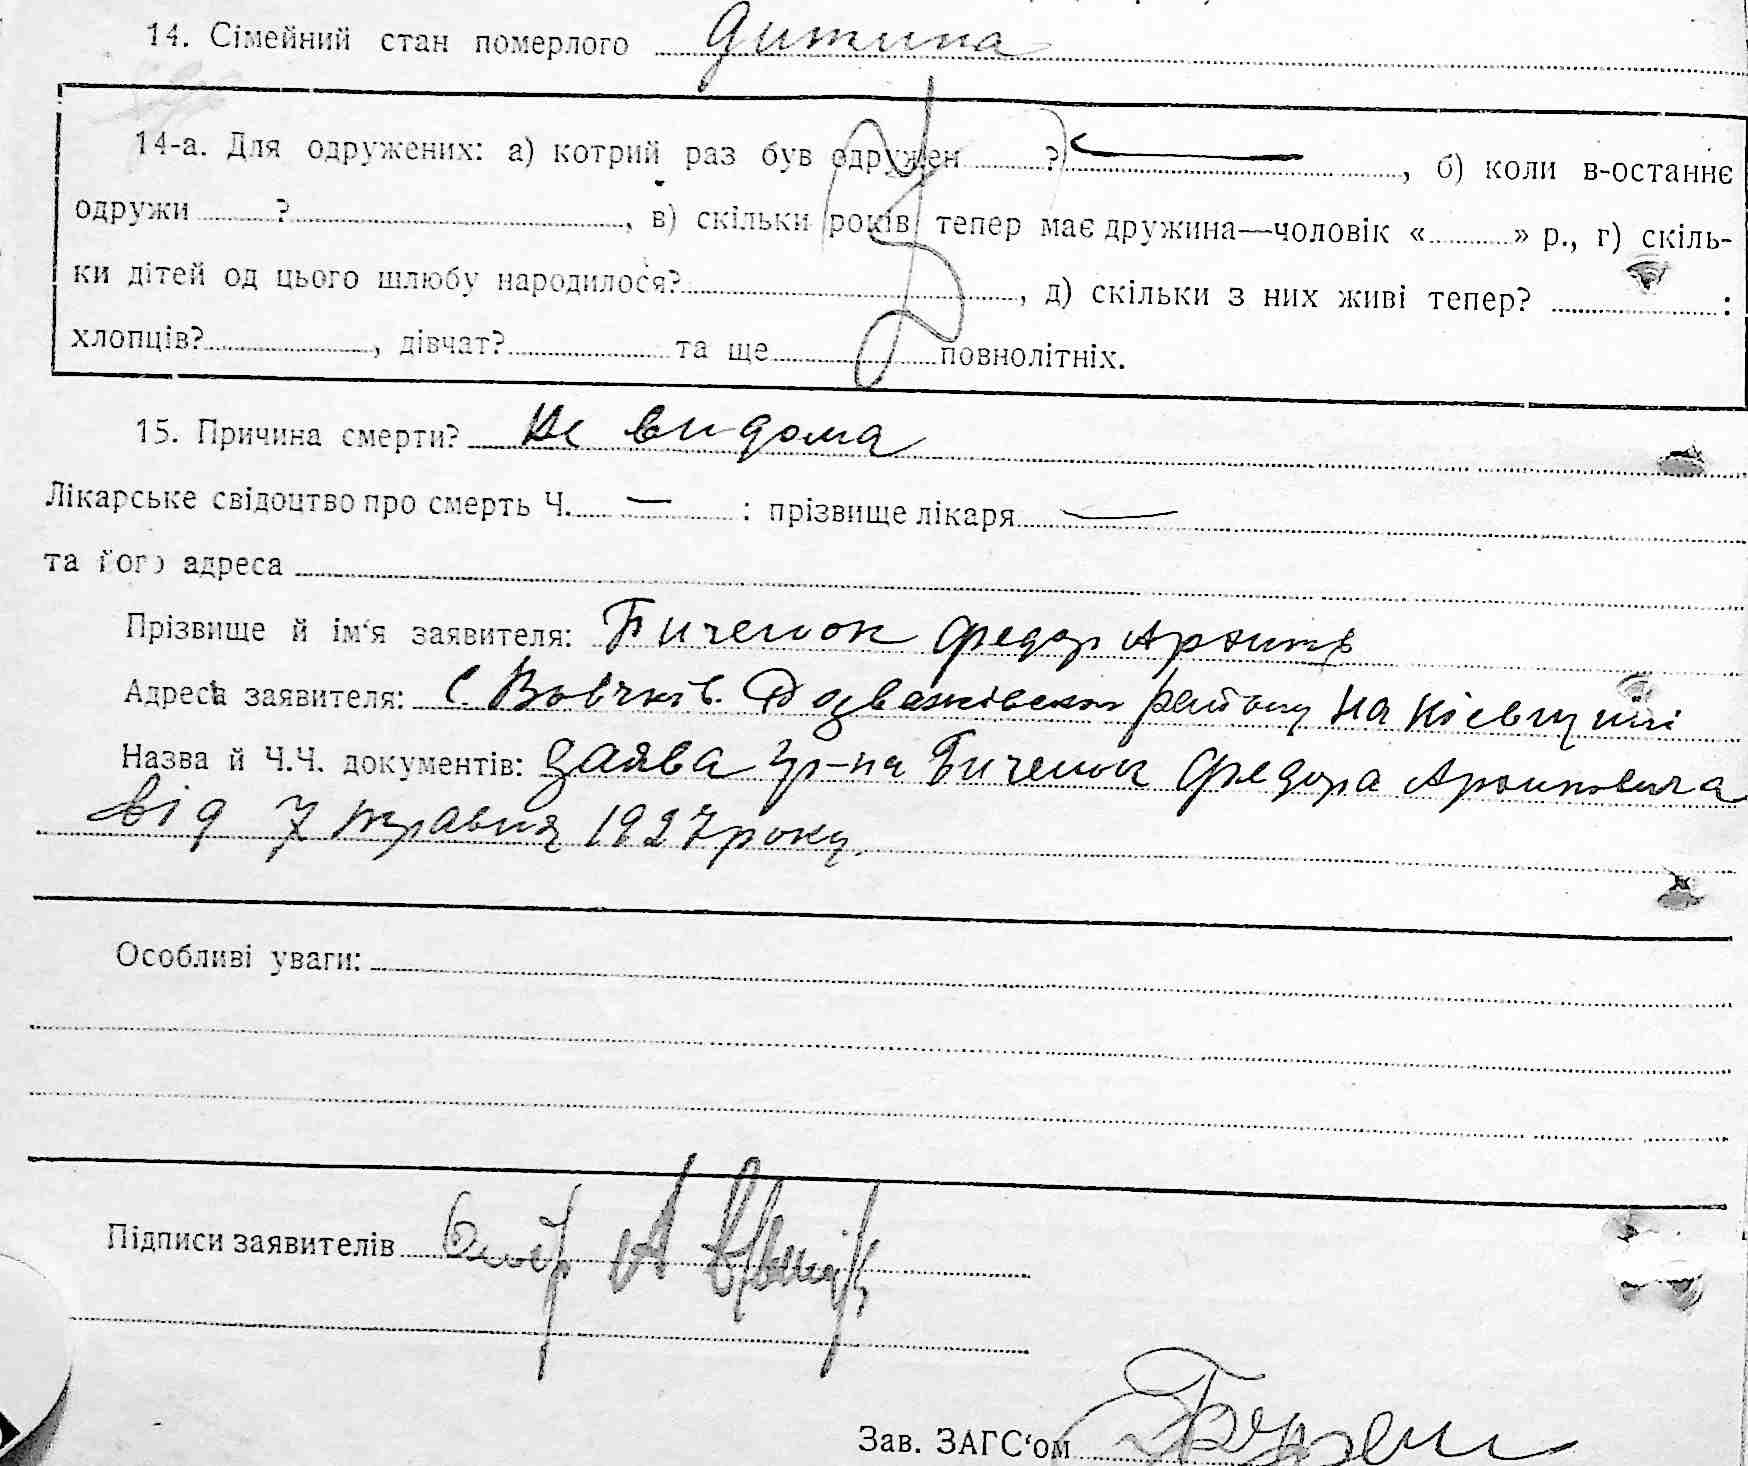 14. Сімейний стан померлого дитина
14-а. Для одружених: а) котрий раз був одружен ? , б) коли в-останнє
одружи ? , в) скільки років тепер має дружина—чоловік « » р., г) скіль-
ки дітей од цього шлюбу народилося? , д) скільки з них живі тепер? :
хлопців? , дівчат? та ще повнолітніх.
15. Причина смерти? не видома
Лікарське свідоцтво про смерть Ч. — : прізвище лікаря —
та його адреса
Прізвище й ім'я заявителя: Биченок Федор
Адреса заявителя: с. Вовчків. району на Київщині
Назва й Ч.Ч. документів: заява гр-на Биченок Федора Архиповича
від 7 травня 1927 року.
Особливі уваги:
Підписи заявителів
Зав. ЗАГС'ом